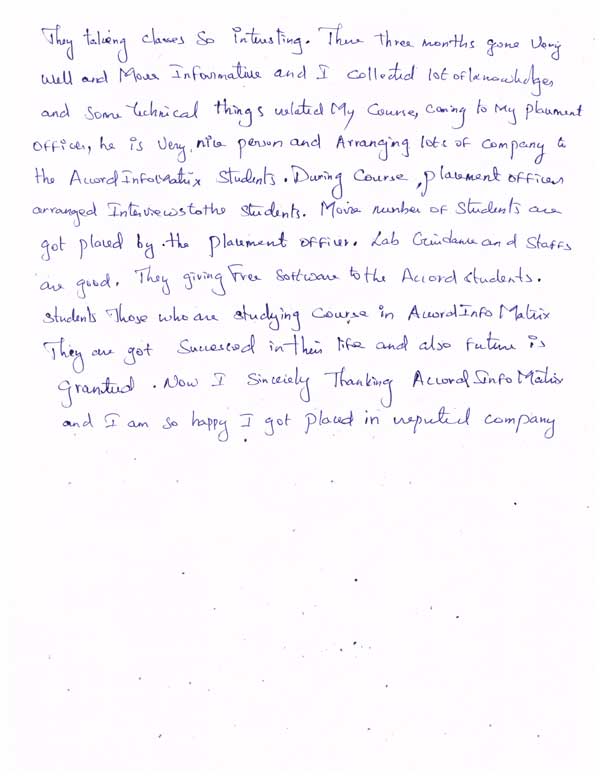 They taking classes So Interesting. There three months gone Very
well and More Informative and I collected lot of knowledges
and Some technical things related My Course, coming to My placement
officer, he is Very nice person and Arranging lots of company to
the Accord Info Matrix Students. During Course, placement officer
arranged Interviews to the Students. More number of Students are
got placed by the placement officer. Lab Guidance and Staffs
are good. They giving Free Software to the Accord students.
Students Those who are studying Course in Accord Info Matrix
They are got Succeeded in their life and also future is
Granted. Now I Sincerely Thanking Accord Info Matrix
and I am so happy I got placed in reputed company